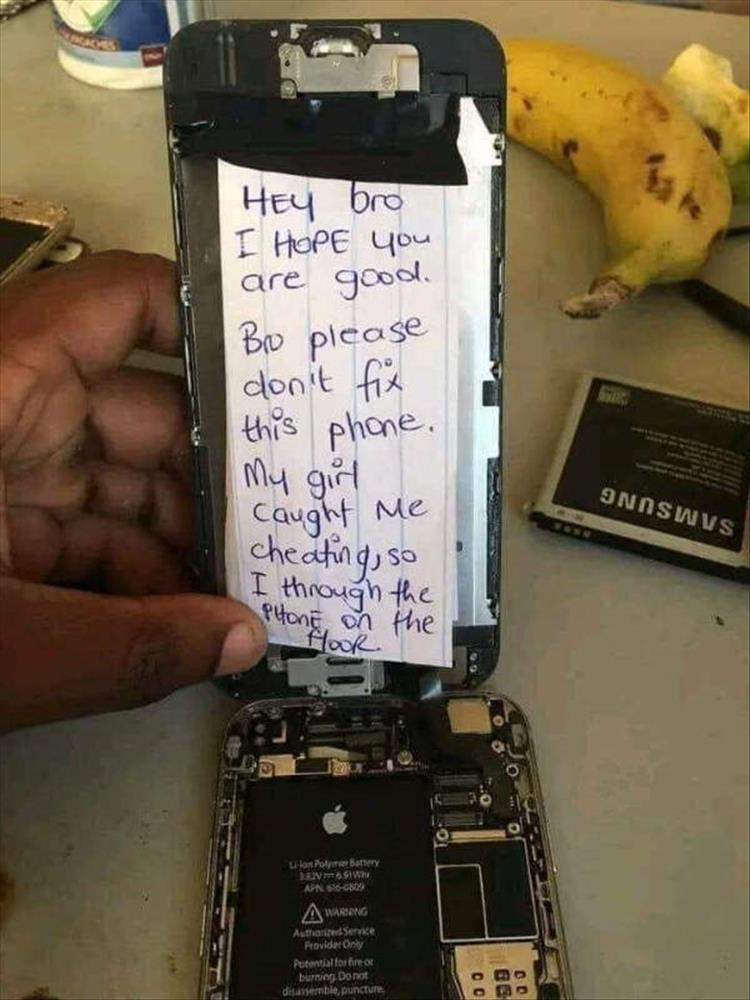 HEY bro
I HOPE you
are good.
Bro please
don't fix
this phone.
My girl
caught Me
cheating, so
I through the
PHONE on the
flooR
SAMSUNG
Li-ion Polymer Battery
3.82V 6.91Whr
APN: 616-0809
WARNING
Authorized Service
Provider Only
Potential for fire or
burning. Do not
disassemble, puncture,